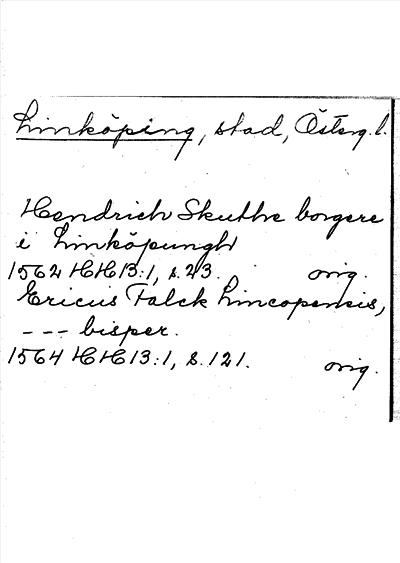 Linköping, stad, Österg. l.
Hendrich Skuthe borgere
i Linköpungh
1562 HH 13:1, s. 23. orig.
Ericus Falck Lincopensis,
--- bisper.
1564 HH 13:1, s. 121. orig.